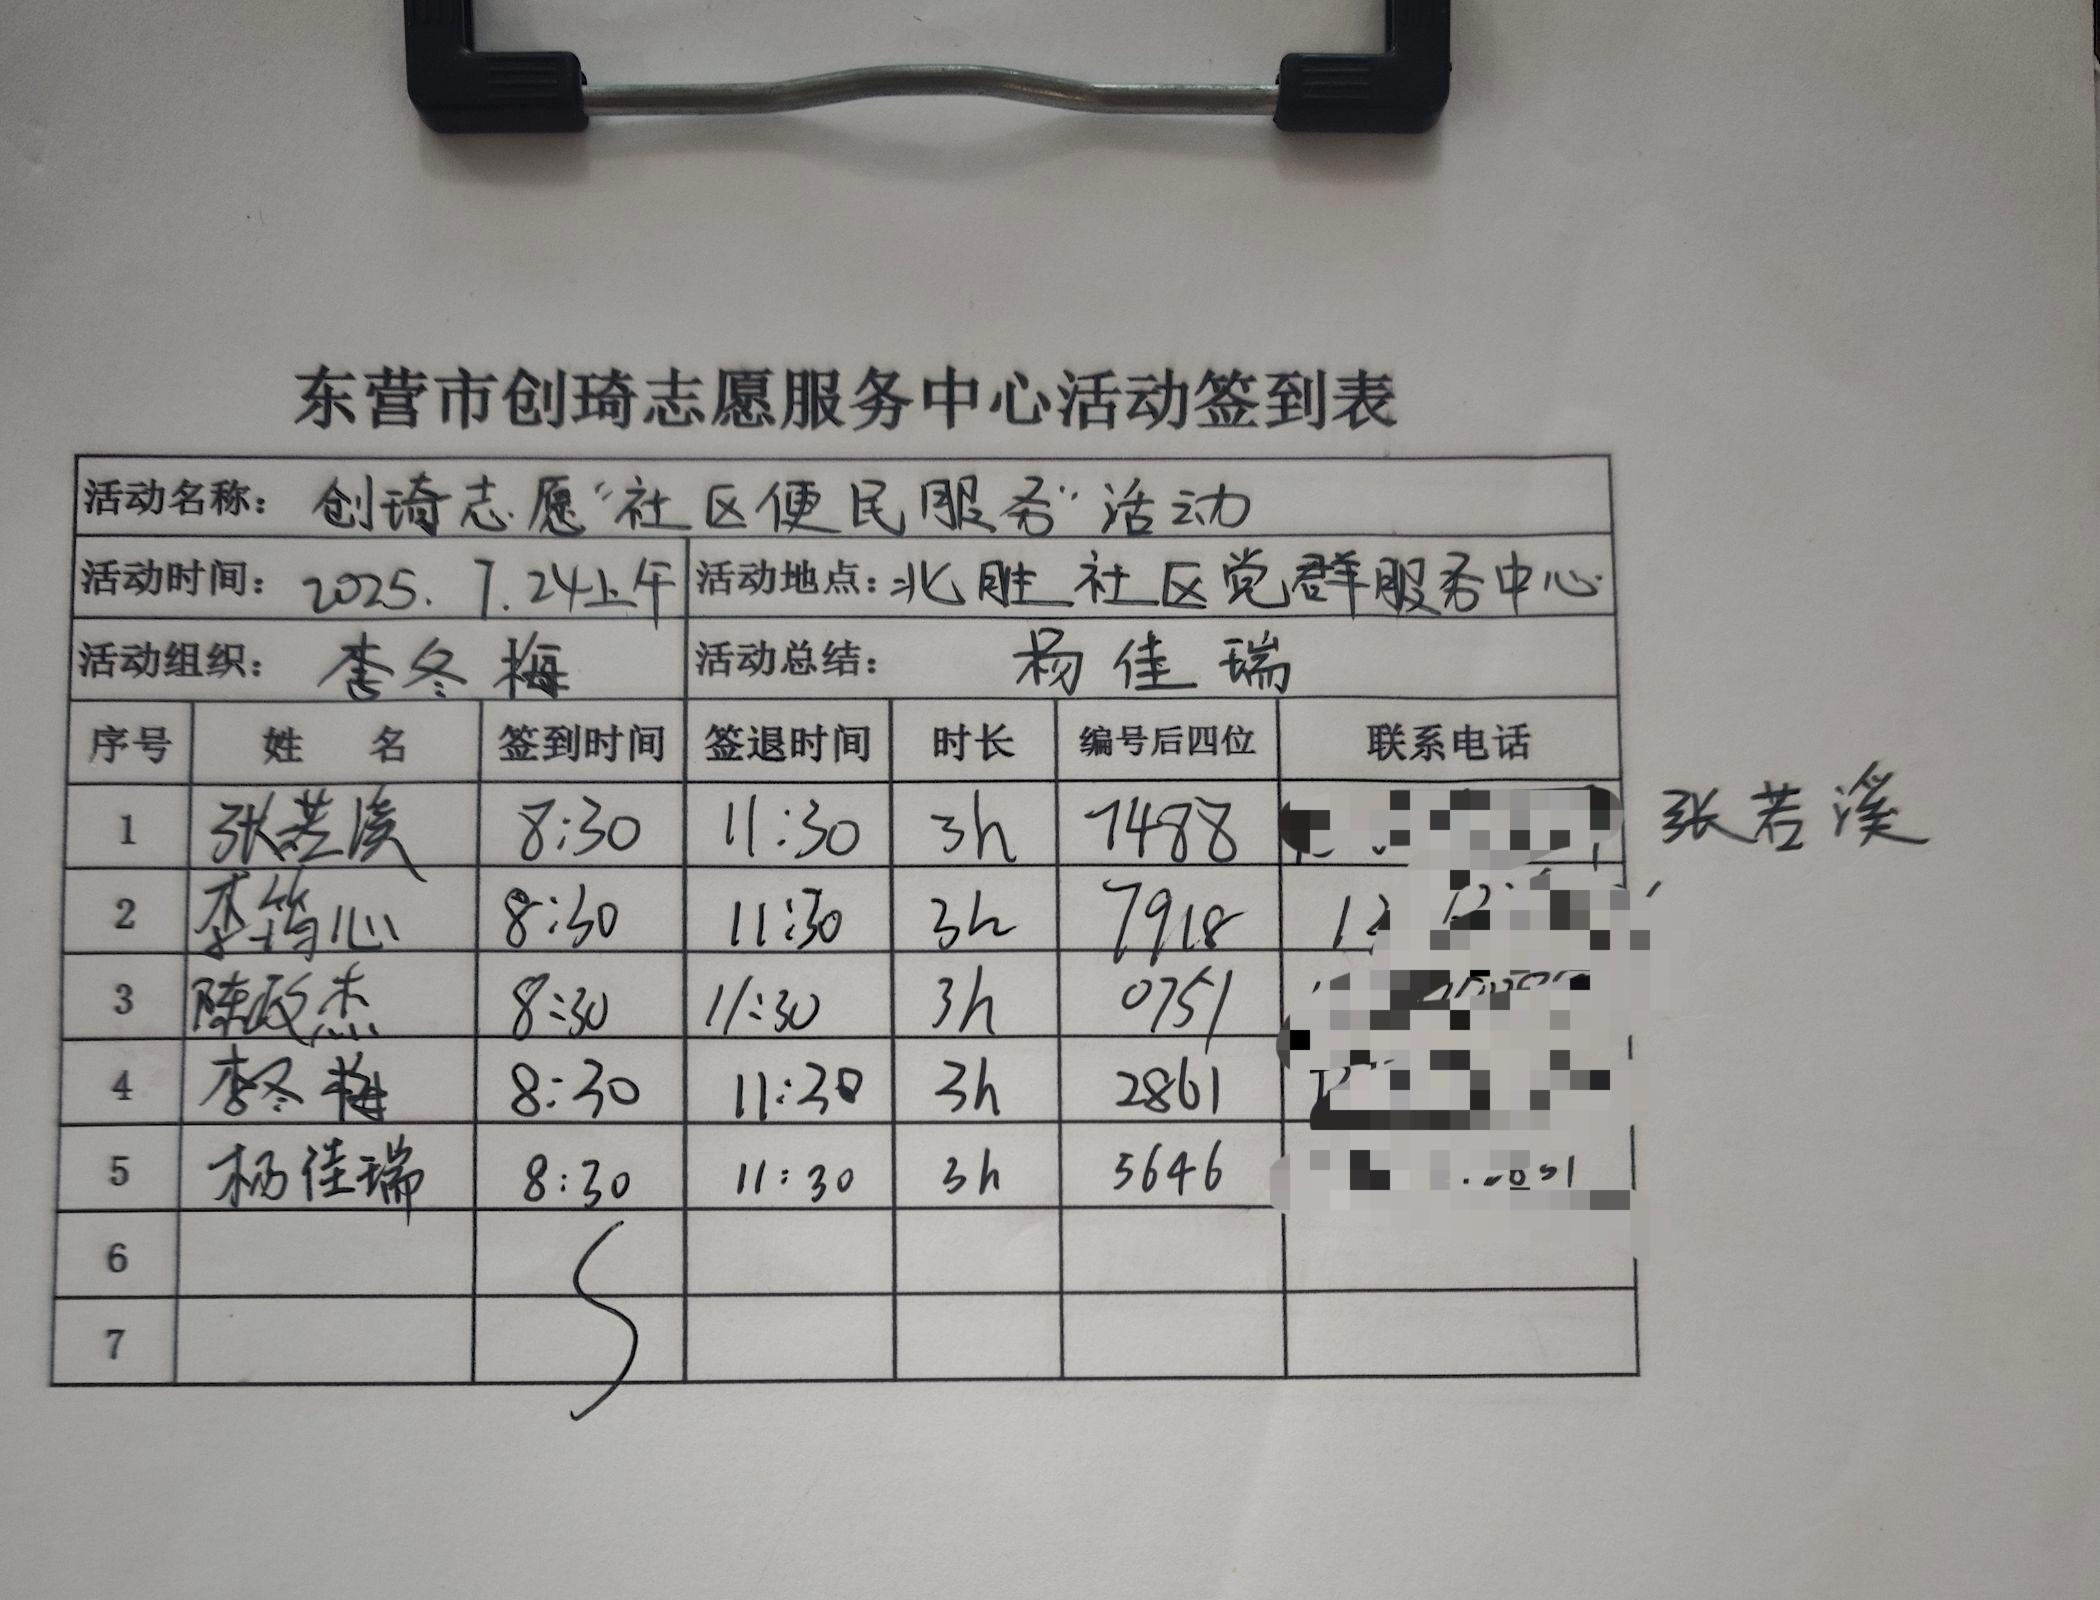 东营市创琦志愿服务中心活动签到表
活动名称: 创琦志愿“社区便民服务”活动
活动时间: 2025.7.24上午 活动地点: 北胜社区党群服务中心
活动组织: 李冬梅 活动总结: 杨佳瑞
序号 姓名 签到时间 签退时间 时长 编号后四位 联系电话
1 张若溪 8:30 11:30 3h 7488 张若溪
2 李筠心 8:30 11:30 3h 7918
3 陈政杰 8:30 11:30 3h 0751
4 李冬梅 8:30 11:30 3h 2861
5 杨佳瑞 8:30 11:30 3h 5646
6
7